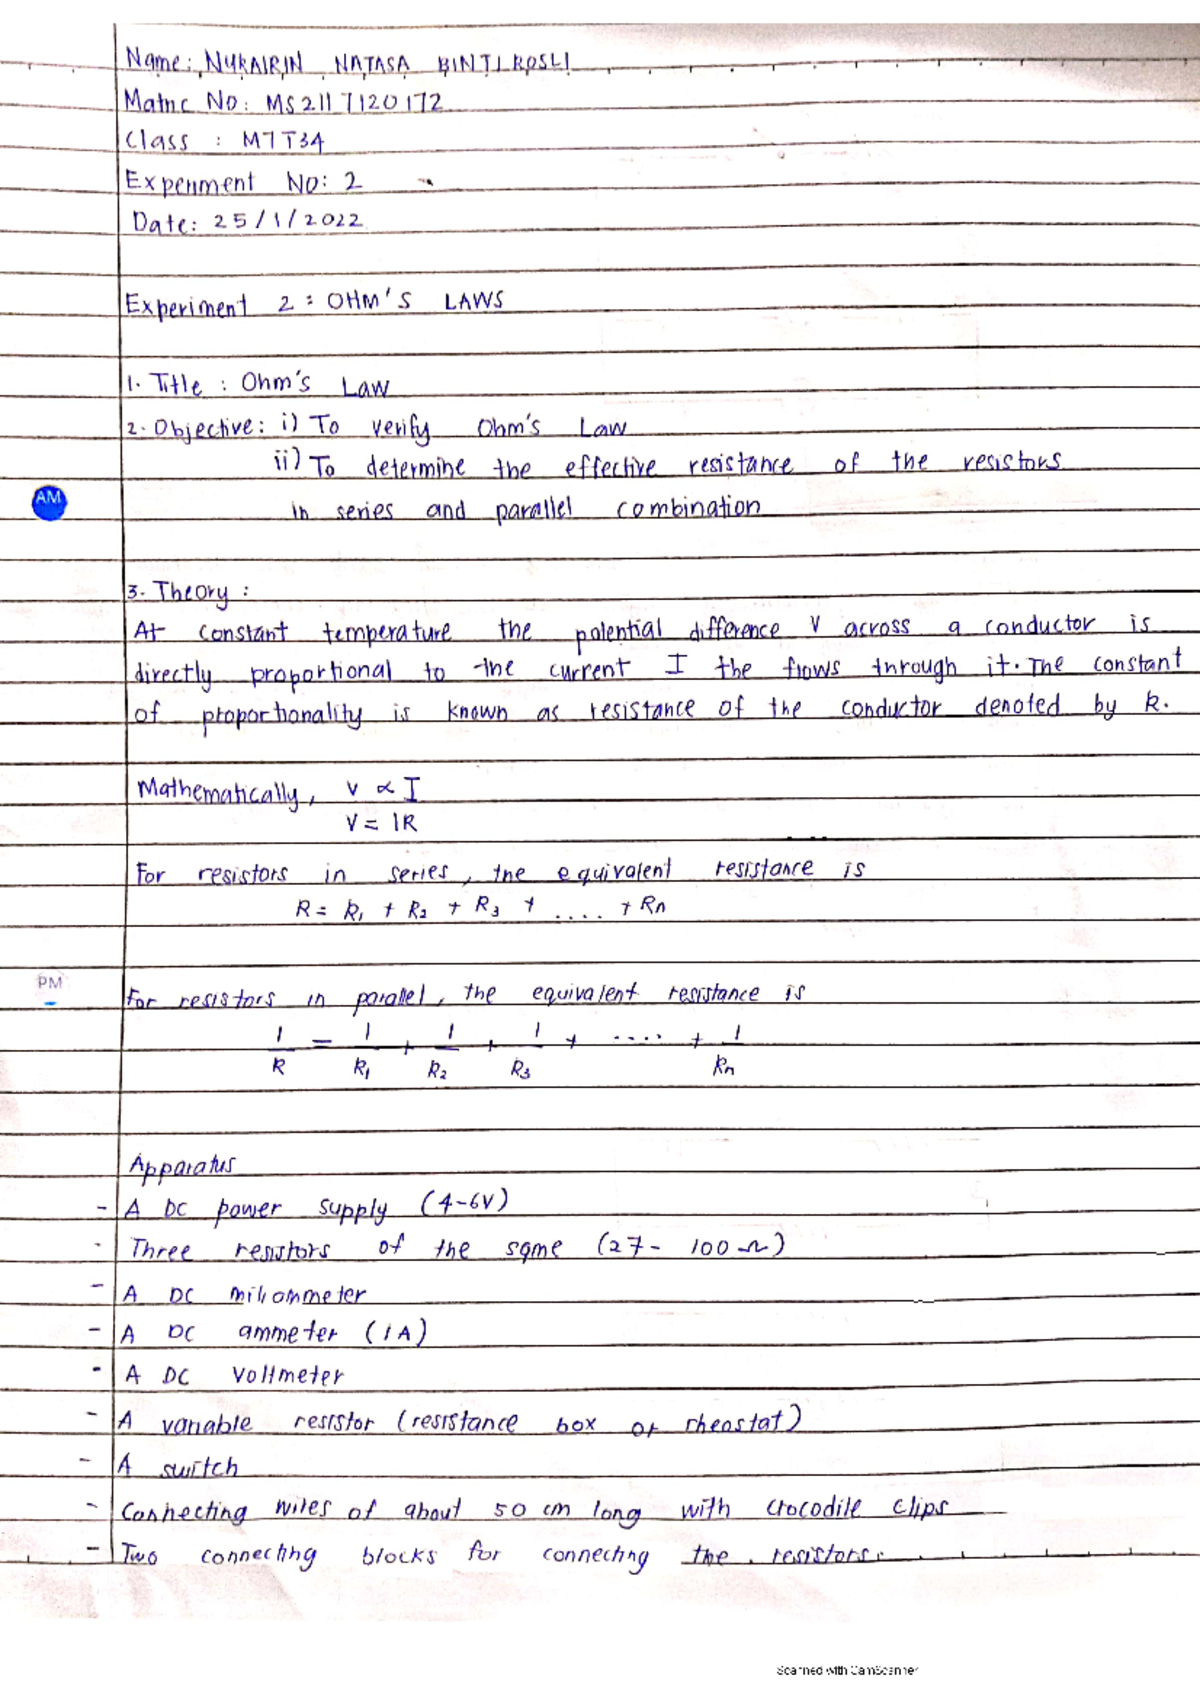 Name: NURAIRIN NATASA BINTI ROSLI
Matric No: MS2117120172
Class : M7T34
Experiment No: 2
Date: 25/1/2022
Experiment 2 : OHM'S LAWS
1. Title : Ohm's Law
2. Objective: i) To verify Ohm's Law
ii) To determine the effective resistance of the resistors
in series and parallel combination
AM
3. Theory :
At constant temperature the potential difference V across a conductor is
directly proportional to the current I the flows through it. The constant
of proportionality is known as resistance of the conductor denoted by R.
Mathematically, V ∝ I
V = IR
For resistors in series, the equivalent resistance is
R = R₁ + R₂ + R₃ + .... + Rn
PM
For resistors in parallel, the equivalent resistance is
1/R = 1/R₁ + 1/R₂ + 1/R₃ + .... + 1/Rn
Apparatus
- A DC power supply (4-6V)
- Three resistors of the same (27 - 100 Ω)
- A DC miliammeter
- A DC ammeter (1A)
- A DC Voltmeter
- A variable resistor (resistance box or rheostat)
- A switch
- Connecting wires of about 50 cm long with crocodile clips
- Two connecting blocks for connecting the resistors.
Scanned with CamScanner